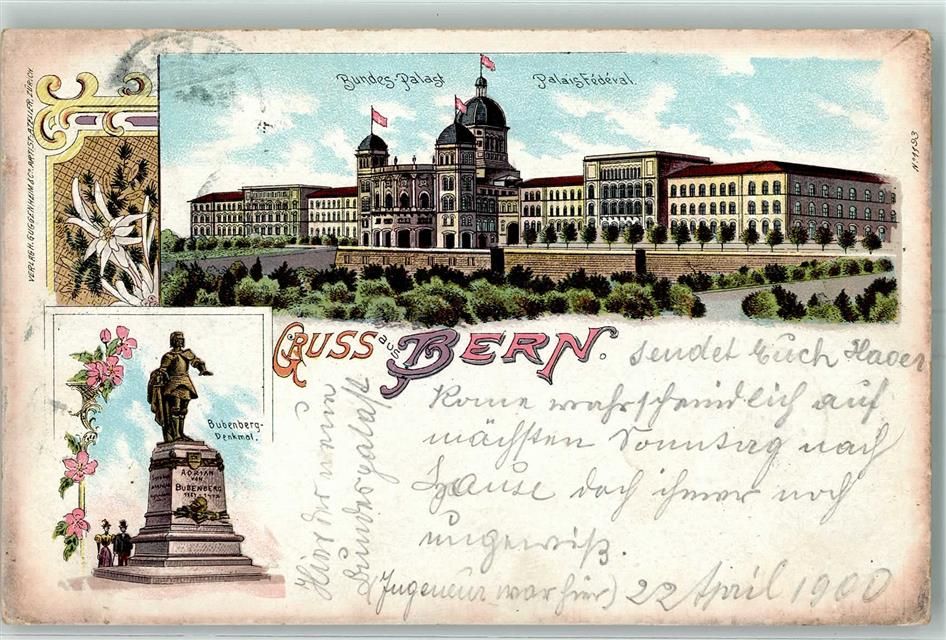 Bundes-Palast Palais Fédéral.
VERLAG H. GUGGENHEIM & Co. ARTIST. ATELIER, ZÜRICH
No 1193
GRUSS aus BERN.
sendet Euch
Kome wahrscheindlich auf
nächsten Sonntag nach
Hause doch immer noch
ungewiß.
(Ingeneur war hier) 22 April 1900
Hier der neue
Bundespalast
Bubenberg-
Denkmal.
ADRIAN
VON
BUBENBERG